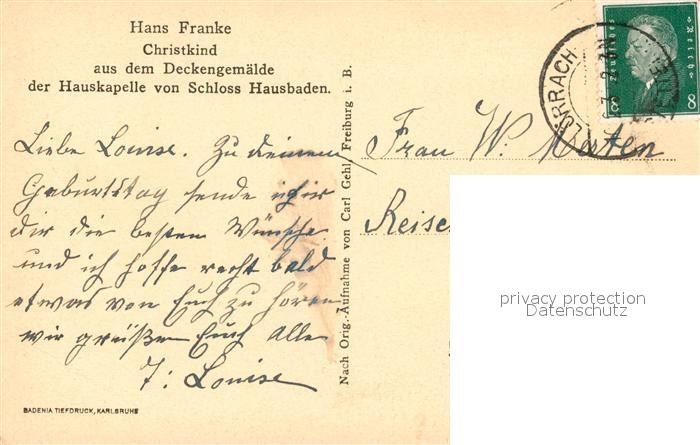 Hans Franke
Christkind
aus dem Deckengemälde
der Hauskapelle von Schloss Hausbaden.
Liebe Louise. Zu deinem
Geburtstag sende ich
dir die besten Wünsche
und ich hoffe recht bald
etwas von Euch zu hören
wir grüßen Euch Alle
Louise
BADENIA TIEFDRUCK, KARLSRUHE
Nach Orig.-Aufnahme von Carl Gehl, Freiburg i. B.
LÖRRACH
Deutsches Reich
8 8
Frau W. Merten
Reise
privacy protection
Datenschutz